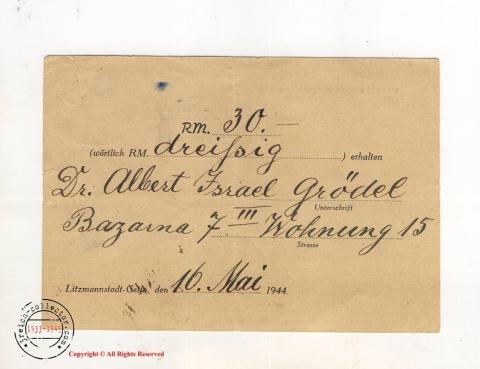 RM. 30.–
(wörtlich RM. dreißig) erhalten
Dr. Albert Israel Grödel
Unterschrift
Bazarna 7 III Wohnung 15
Strasse
Litzmannstadt-Getto, den 16. Mai 1944.
3reich-collector.com
1933-1945
Copyright © All Rights Reserved